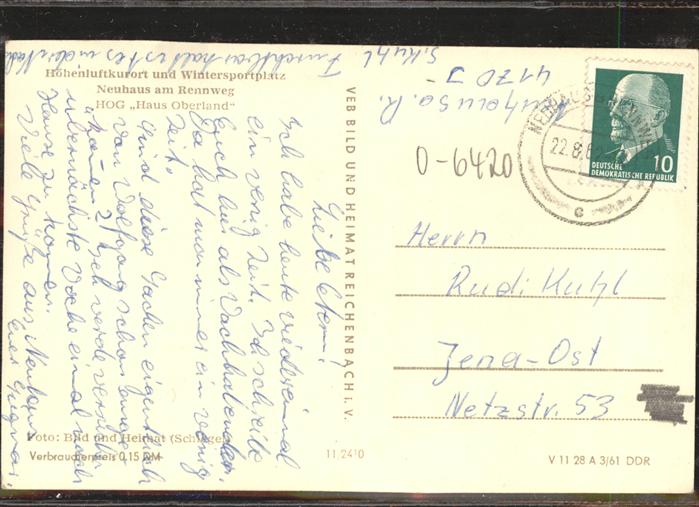 Höhenluftkurort und Wintersportplatz
Neuhaus am Rennweg
HOG „Haus Oberland"
Liebe Eltern!
Ich habe heute wieder einmal
ein wenig Zeit. Ich schreibe
Euch
Da hat man immer ein wenig
Zeit.
Sind diese Sachen eigentlich
von Wolfgang schon
Ich werde versuchen
übernächste Woche einmal nach
Hause zu kommen.
Viele Grüße aus Neuhaus
Euer
Foto: Bild und Heimat (Schlegel)
Verbraucherpreis 0,15 DM
11,2410
VEB BILD UND HEIMAT REICHENBACH i. V.
S. Kuhl
Neuhaus a. R.
O-6420
22.8.6
c
10
DEUTSCHE
DEMOKRATISCHE REPUBLIK
Herrn
Rudi Kuhl
Jena-Ost
Netzstr. 53
V 11 28 A 3/61 DDR